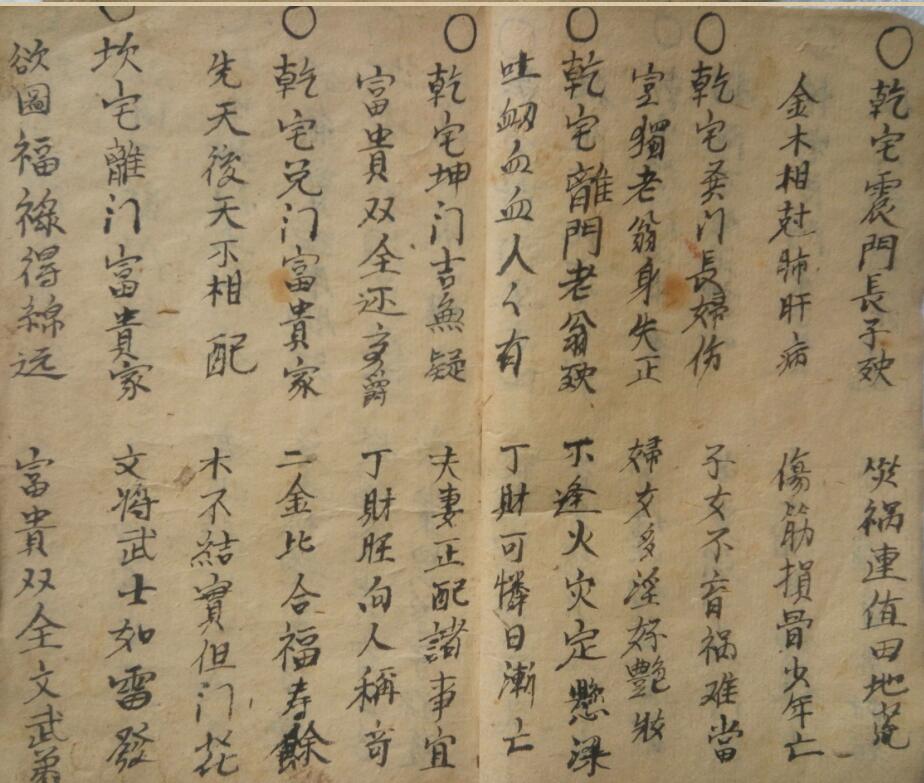 〇乾宅震門長子殃 災祸連值田地荒
金木相尅肺肝病 傷筋損骨少年亡
〇乾宅巽门長婦伤 子女不育祸难當
室獨老翁身失正 婦女多淫好艷妝
〇乾宅離門老翁殃 不逢火灾定懸梁
吐衂血血人々有 丁財可憐日漸亡
〇乾宅坤门吉無疑 夫妻正配諸事宜
富貴双全还多爵 丁財旺向人稱奇
〇乾宅兑门富貴家 二金比合福寿餘
先天後天不相配 木不結實但门花
〇坎宅離门富貴家 文将武士如雷發
欲圖福禄得綿远 富貴双全文武弟